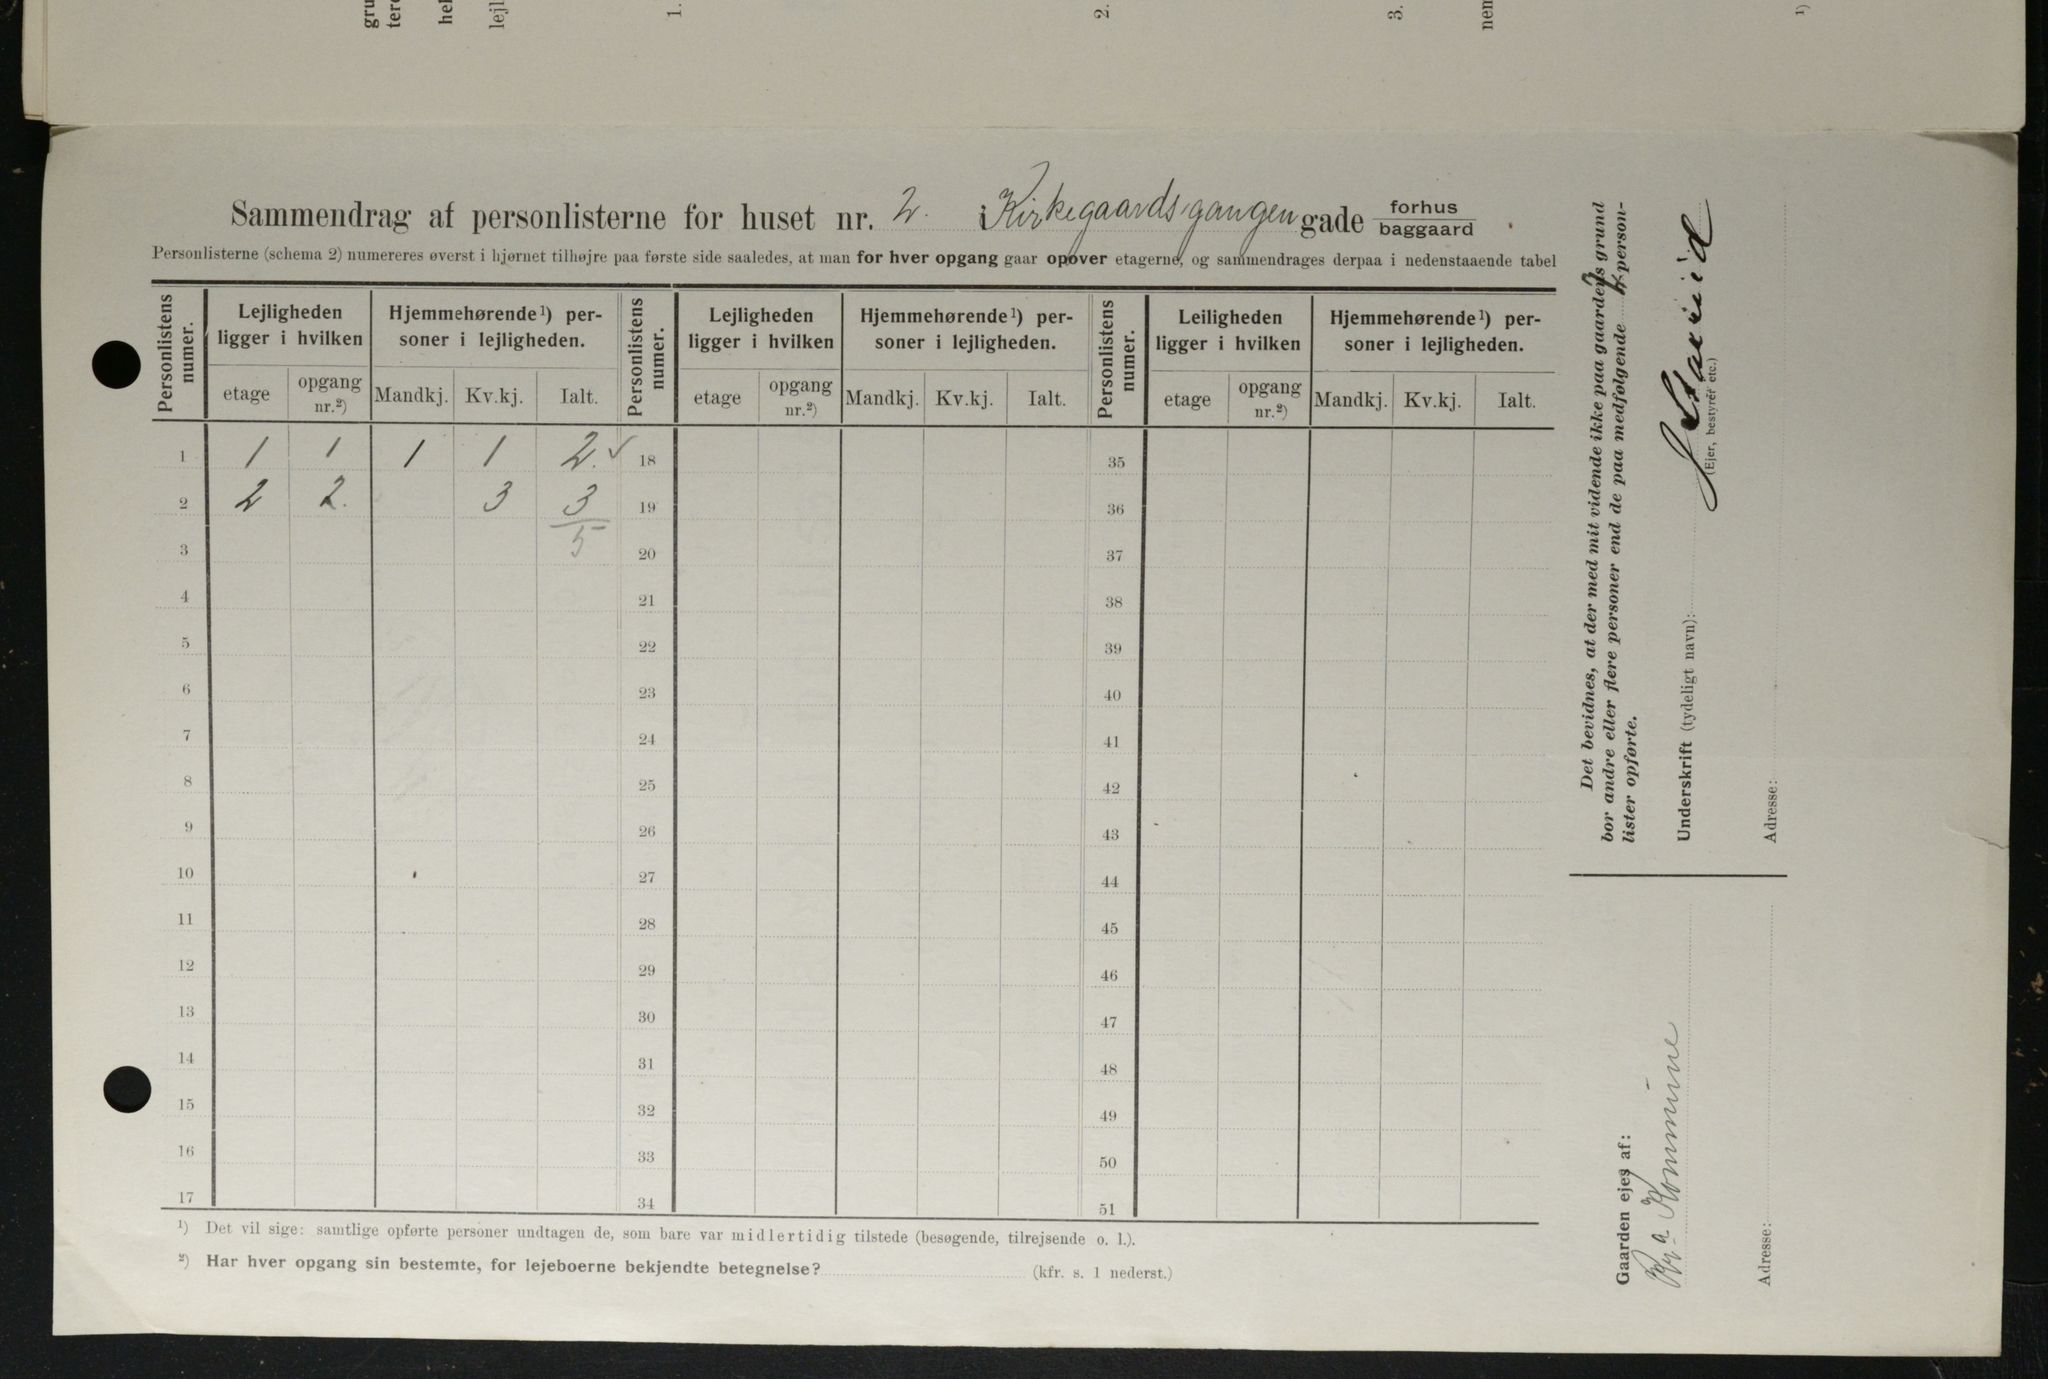 gru
tere
hel
lejl
1.
2.
3.
nem
1)
Sammendrag af personlisterne for huset nr. 2. i Kirkegaardsgangen gade forhus
baggaard
Personlisterne (schema 2) numereres øverst i hjørnet tilhøjre paa første side saaledes, at man for hver opgang gaar opover etagerne, og sammendrages derpaa i nedenstaaende tabel
Personlistens numer. Lejligheden ligger i hvilken Hjemmehørende1) personer i lejligheden. Personlistens numer. Lejligheden ligger i hvilken Hjemmehørende1) personer i lejligheden. Personlistens numer. Leiligheden ligger i hvilken Hjemmehørende1) personer i lejligheden.
etage opgang nr.2) Mandkj. Kv.kj. Ialt. etage opgang nr.2) Mandkj. Kv.kj. Ialt. etage opgang nr.2) Mandkj. Kv.kj. Ialt.
1 1 1 1 1 2. ✓ 18 35
2 2 2. 3 3 19 36
3 5 20 37
4 21 38
5 22 39
6 23 40
7 24 41
8 25 42
9 26 43
10 27 44
11 28 45
12 29 46
13 30 47
14 31 48
15 32 49
16 33 50
17 34 51
1) Det vil sige: samtlige opførte personer undtagen de, som bare var midlertidig tilstede (besøgende, tilrejsende o. l.).
2) Har hver opgang sin bestemte, for lejeboerne bekjendte betegnelse? (kfr. s. 1 nederst.)
Det bevidnes, at der med mit vidende ikke paa gaardens grund
bor andre eller flere personer end de paa medfølgende person-
lister opførte.
Underskrift (tydeligt navn):
(Ejer, bestyrer etc.)
Adresse:
Gaarden ejes af:
Kr.a Kommune
Adresse: